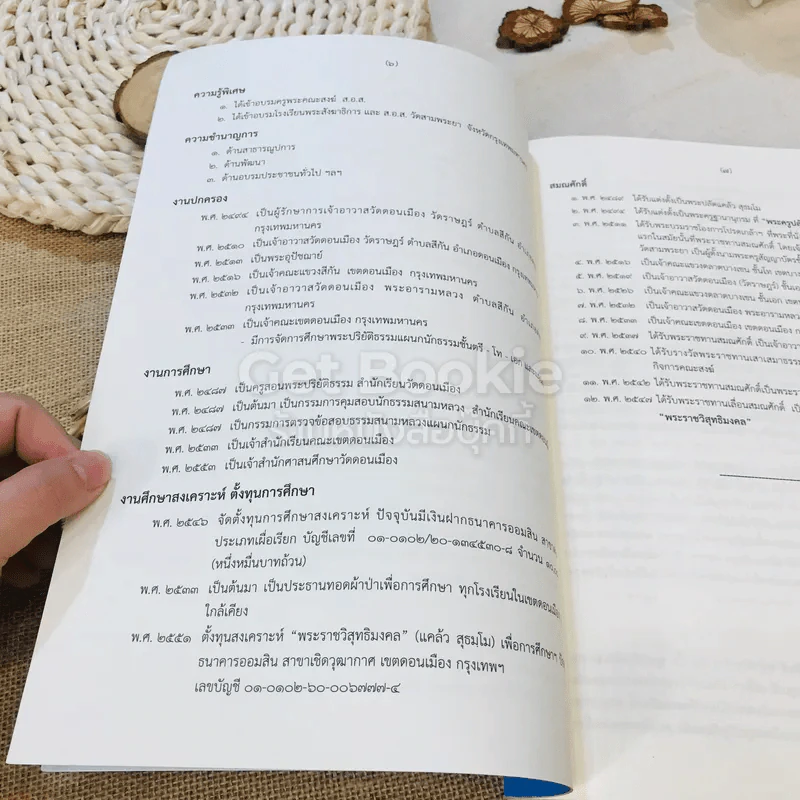 (๖)
ความรู้พิเศษ
๑. ได้เข้าอบรมครูพระคณะสงฆ์ ส.อ.ส.
๒. ได้เข้าอบรมโรงเรียนพระสังฆาธิการ และ ส.อ.ส. วัดสามพระยา จังหวัดกรุงเทพมหานคร
ความชำนาญการ
๑. ด้านสาธารณูปการ
๒. ด้านพัฒนา
๓. ด้านอบรมประชาชนทั่วไป ฯลฯ
งานปกครอง
พ.ศ. ๒๔๙๔ เป็นผู้รักษาการเจ้าอาวาสวัดดอนเมือง วัดราษฎร์ ตำบลสีกัน อำเภอ
กรุงเทพมหานคร
พ.ศ. ๒๕๑๐ เป็นเจ้าอาวาสวัดดอนเมือง วัดราษฎร์ ตำบลสีกัน อำเภอดอนเมือง
พ.ศ. ๒๕๑๓ เป็นพระอุปัชฌาย์
พ.ศ. ๒๕๑๖ เป็นเจ้าคณะแขวงสีกัน เขตดอนเมือง กรุงเทพมหานคร
พ.ศ. ๒๕๓๒ เป็นเจ้าอาวาสวัดดอนเมือง พระอารามหลวง ตำบลสีกัน
กรุงเทพมหานคร
พ.ศ. ๒๕๓๓ เป็นเจ้าคณะเขตดอนเมือง กรุงเทพมหานคร
- มีการจัดการศึกษาพระปริยัติธรรมแผนกนักธรรมชั้นตรี - โท - เอก
งานการศึกษา
พ.ศ. ๒๔๘๗ เป็นครูสอนพระปริยัติธรรม สำนักเรียนวัดดอนเมือง
พ.ศ. ๒๔๘๗ เป็นต้นมา เป็นกรรมการคุมสอบนักธรรมสนามหลวง สำนักเรียนคณะเขตดอนเมือง
พ.ศ. ๒๔๘๗ เป็นกรรมการตรวจข้อสอบธรรมสนามหลวงแผนกนักธรรม
พ.ศ. ๒๕๓๓ เป็นเจ้าสำนักเรียนคณะเขตดอนเมือง
พ.ศ. ๒๕๕๓ เป็นเจ้าสำนักศาสนศึกษาวัดดอนเมือง
งานศึกษาสงเคราะห์ ตั้งทุนการศึกษา
พ.ศ. ๒๕๔๖ จัดตั้งทุนการศึกษาสงเคราะห์ ปัจจุบันมีเงินฝากธนาคารออมสิน
ประเภทเผื่อเรียก บัญชีเลขที่ ๐๑-๐๑๐๒/๒๐-๑๓๔๕๓๐-๘ จำนวน
(หนึ่งหมื่นบาทถ้วน)
พ.ศ. ๒๕๓๓ เป็นต้นมา เป็นประธานทอดผ้าป่าเพื่อการศึกษา ทุกโรงเรียนในเขตดอนเมือง
ใกล้เคียง
พ.ศ. ๒๕๕๑ ตั้งทุนสงเคราะห์ "พระราชวิสุทธิมงคล" (แคล้ว สุธมฺโม) เพื่อการศึกษาฯ
ธนาคารออมสิน สาขาเชิดวุฒากาศ เขตดอนเมือง กรุงเทพฯ
เลขบัญชี ๐๑-๐๑๐๒-๖๐-๐๐๖๗๗๗-๔
(๗)
สมณศักดิ์
๑. พ.ศ. ๒๔๘๙ ได้รับแต่งตั้งเป็นพระปลัดแคล้ว สุธมฺโม
๒. พ.ศ. ๒๔๙๔ ได้รับแต่งตั้งเป็นพระครูฐานานุกรม ที่ "พระครูปลัด
๓. พ.ศ. ๒๕๑๑ ได้รับพระบรมราชโองการโปรดเกล้าฯ ที่พระที่นั่ง
แรกในสมัยนั้นที่พระราชทานสมณศักดิ์ โดย
วัดสามพระยา เป็นผู้ตั้งนามพระครูสัญญาบัตร
๔. พ.ศ. ๒๕๑๖ เป็นเจ้าคณะแขวงตลาดบางเขน ชั้นโท
๕. พ.ศ. ๒๕๑๙ เป็นเจ้าอาวาสวัดดอนเมือง (วัดราษฎร์)
๖. พ.ศ. ๒๕๒๖ เป็นเจ้าคณะแขวงตลาดบางเขน ชั้นเอก
๗. พ.ศ. ๒๕๓๒ เป็นเจ้าอาวาสวัดดอนเมือง พระอารามหลวง
๘. พ.ศ. ๒๕๓๓ เป็นเจ้าคณะเขตดอนเมือง
๙. พ.ศ. ๒๕๓๗ ได้รับพระราชทานสมณศักดิ์ เป็นเจ้าอาวาส
๑๐. พ.ศ. ๒๕๔๐ ได้รับรางวัลพระราชทานเสาเสมาธรรม
กิจการคณะสงฆ์
๑๑. พ.ศ. ๒๕๔๒ ได้รับพระราชทานสมณศักดิ์เป็นพระราช
๑๒. พ.ศ. ๒๕๔๗ ได้รับพระราชทานเลื่อนสมณศักดิ์
"พระราชวิสุทธิมงคล"
Get Bookie
ร้านหนังสือบุ๊คกี้